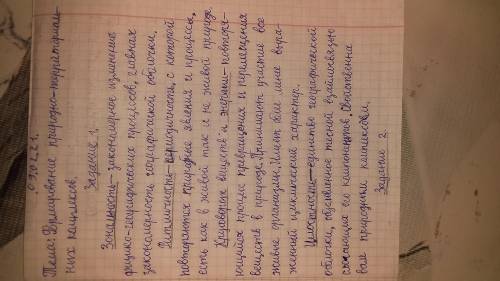 03.02.21.
Тема: Формирование природно-территориаль-
ных комплексов.
Задание 1.
Зональность-закономерное изменение
физико-географических процессов, главная
закономерность географической оболочки.
Ритмичность-периодичность, с которой
повторяются природные явления и процессы.
есть как в живой так и не живой природе
Круговорот веществ и энергии-повторя-
ющийся процесс превращения и перемещения
веществ в природе. Принимают участие все
живые организмы. Имеет более или менее выра-
женный циклический характер.
Целостность-единство географической
оболочки, обусловленное тесной взаимосвязью
её компонентов. Свойственна
всем природным комплексам.
Задание 2